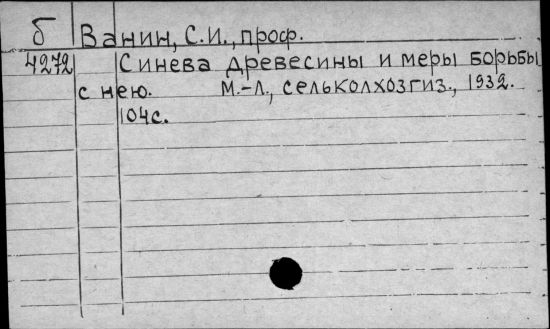 б Ванин, С.И., проф.
4272 Синева древесины и меры борьбы
с нею. М.-Л., сельколхозгиз., 1932.
104с.